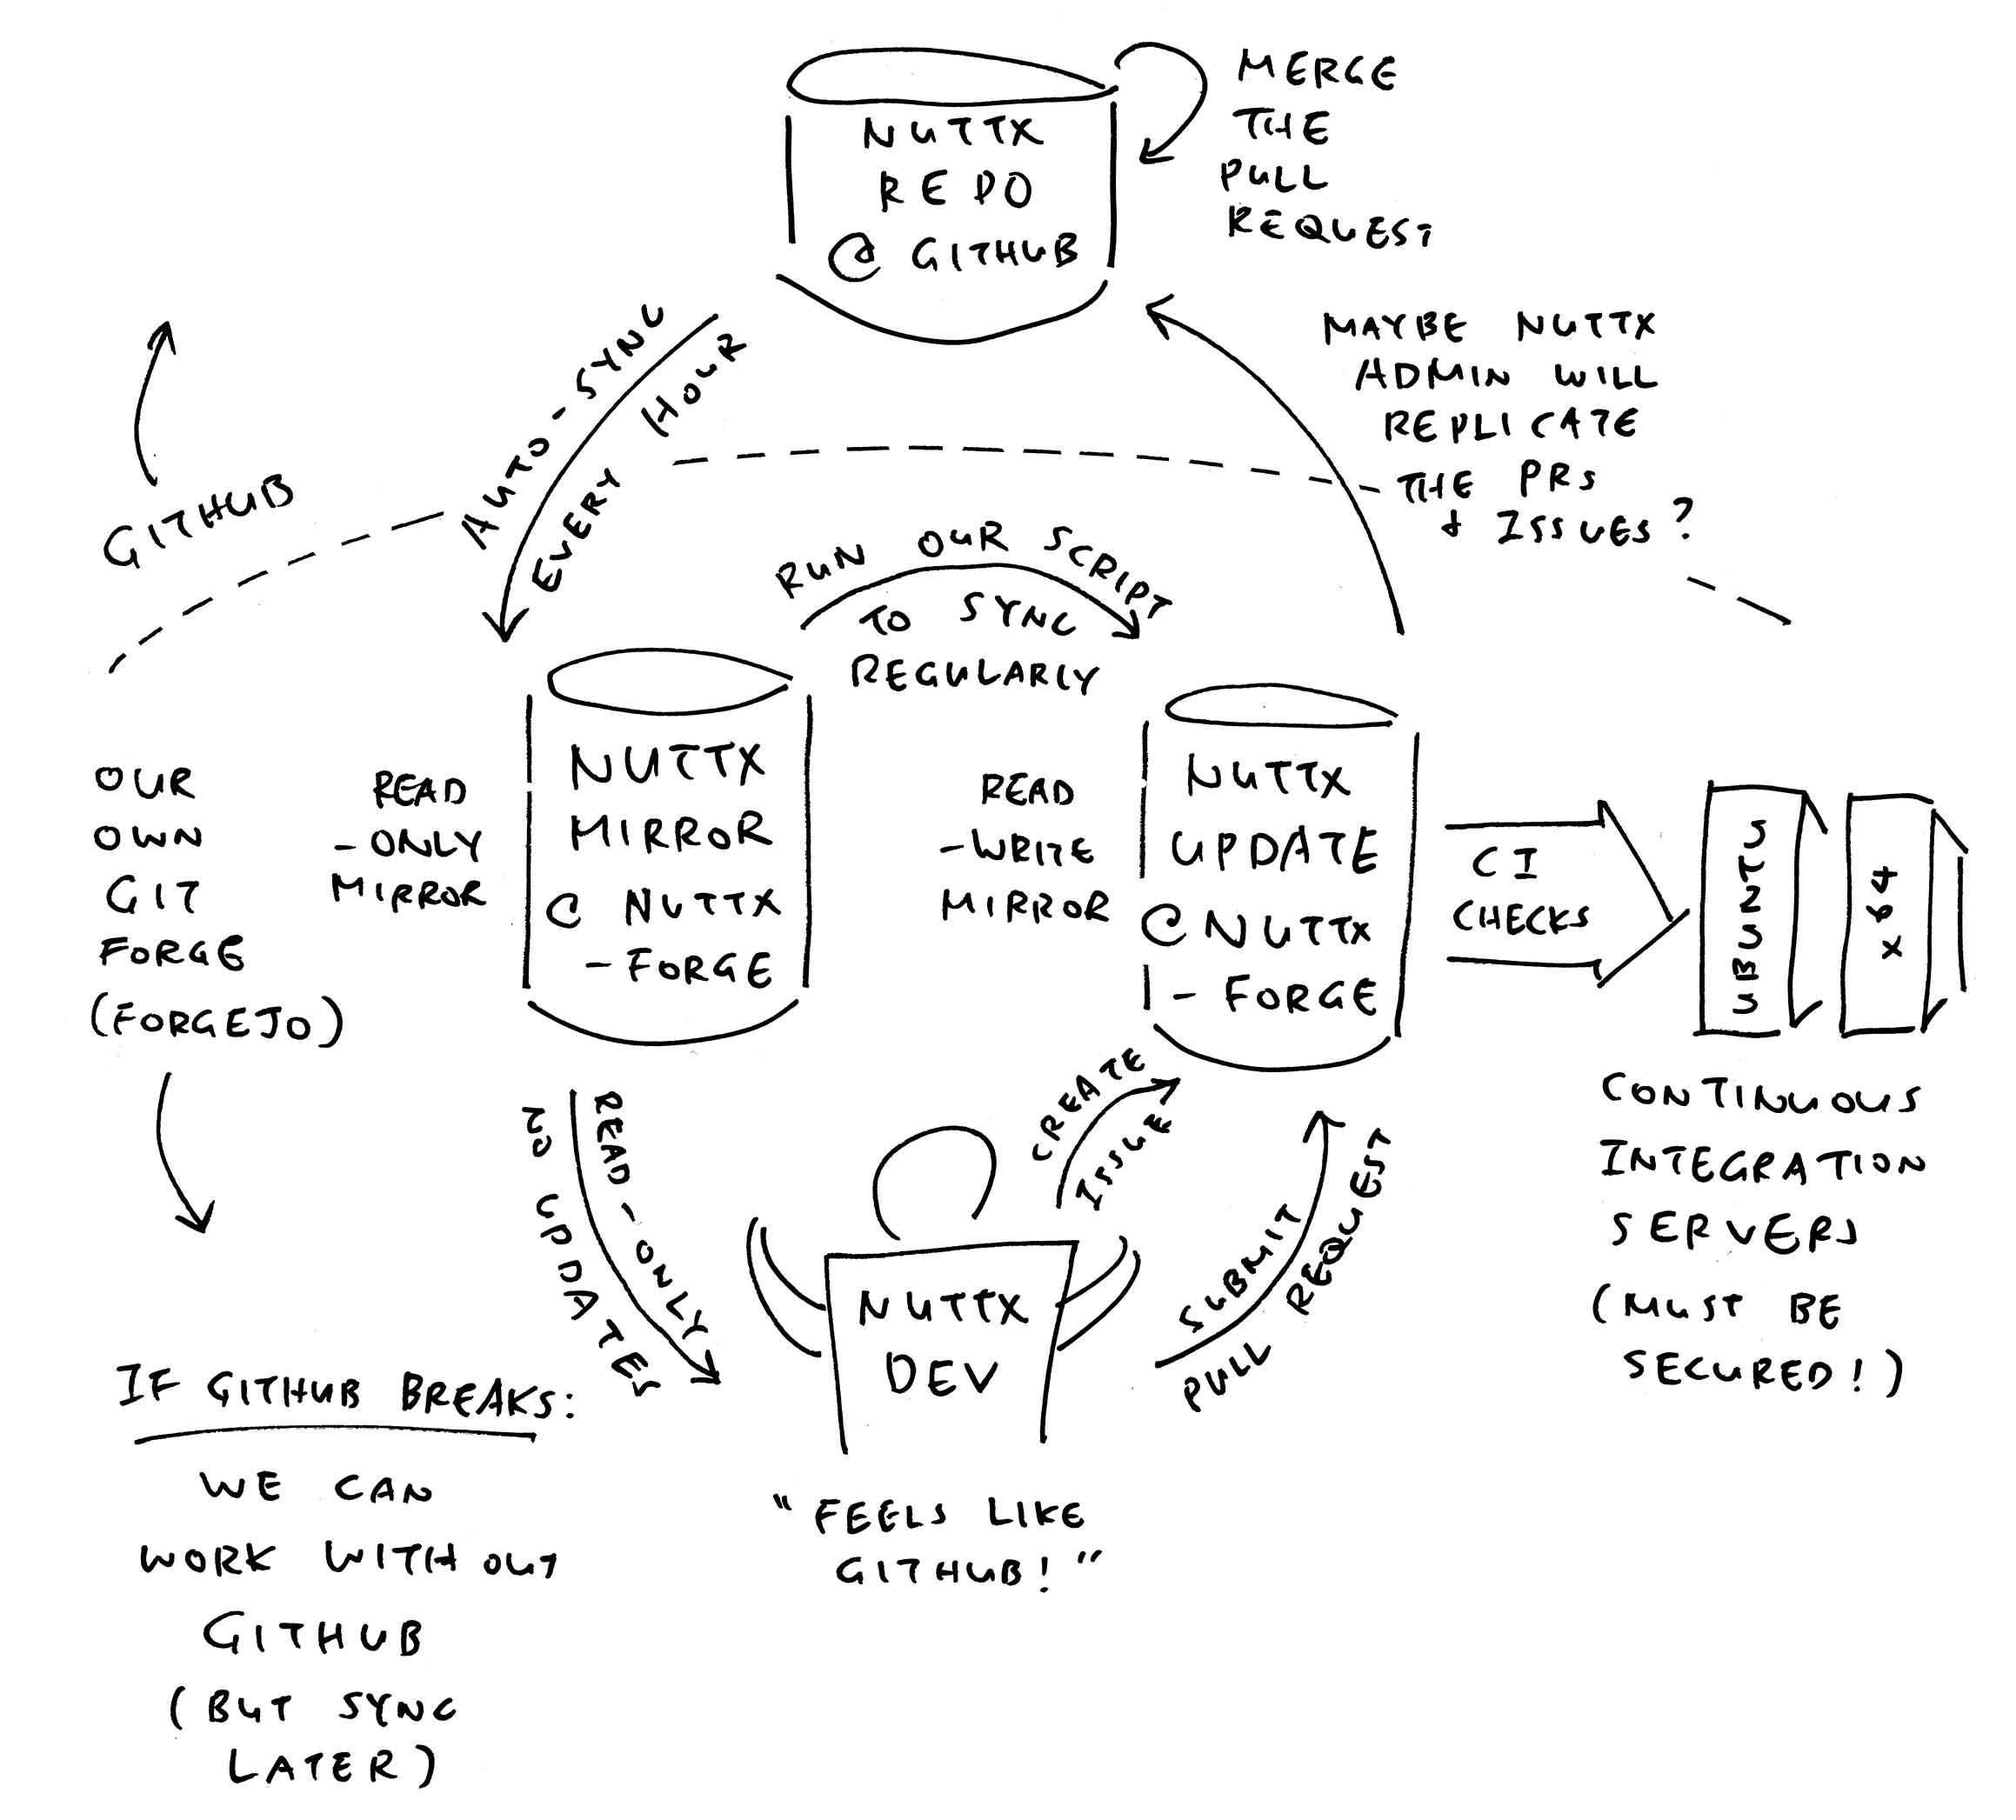 NUTTX
REPO
@ GITHUB
MERGE
THE
PULL
REQUEST
MAYBE NUTTX
ADMIN WILL
REPLICATE
THE PRS
+ ISSUES?
AUTO-SYNC
EVERY HOUR
GITHUB
RUN OUR SCRIPT
TO SYNC
REGULARLY
OUR
OWN
GIT
FORGE
(FORGEJO)
READ
-ONLY
MIRROR
NUTTX
MIRROR
@ NUTTX
-FORGE
READ
-WRITE
MIRROR
NUTTX
UPDATE
@ NUTTX
-FORGE
CI
CHECKS
STM32
x64
CONTINUOUS
INTEGRATION
SERVERS
(MUST BE
SECURED!)
READ-ONLY
NO UPDATES
CREATE
ISSUE
SUBMIT
PULL REQUEST
NUTTX
DEV
"FEELS LIKE
GITHUB!"
IF GITHUB BREAKS:
WE CAN
WORK WITHOUT
GITHUB
(BUT SYNC
LATER)